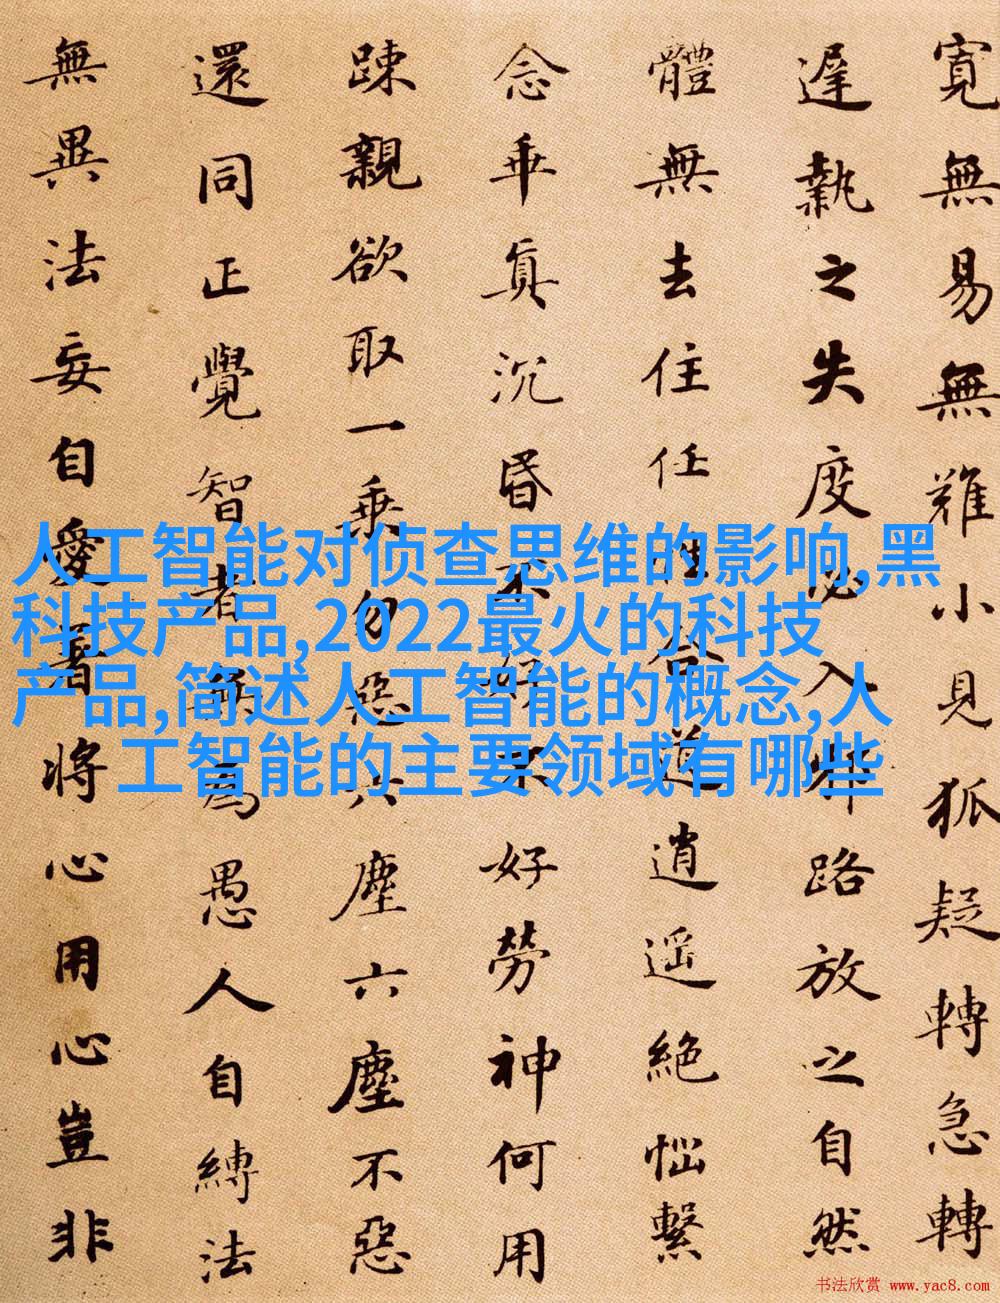 寬無易無難小見狐疑轉急轉
遲執之失度必入邪路放之自然
體無去住任性合道逍遙絕惱繫
念乖真沉昏不好不好勞神何用
踈親欲取一乘勿惡六塵六塵不惡
還同正覺智者無為愚人自縛法
無異法妄自愛著將心用心豈非
人工智能对侦查思维的影响,黑
科技产品,2022最火的科技
产品,简述人工智能的概念,人
工智能的主要领域有哪些
书法欣赏 www.yac8.com